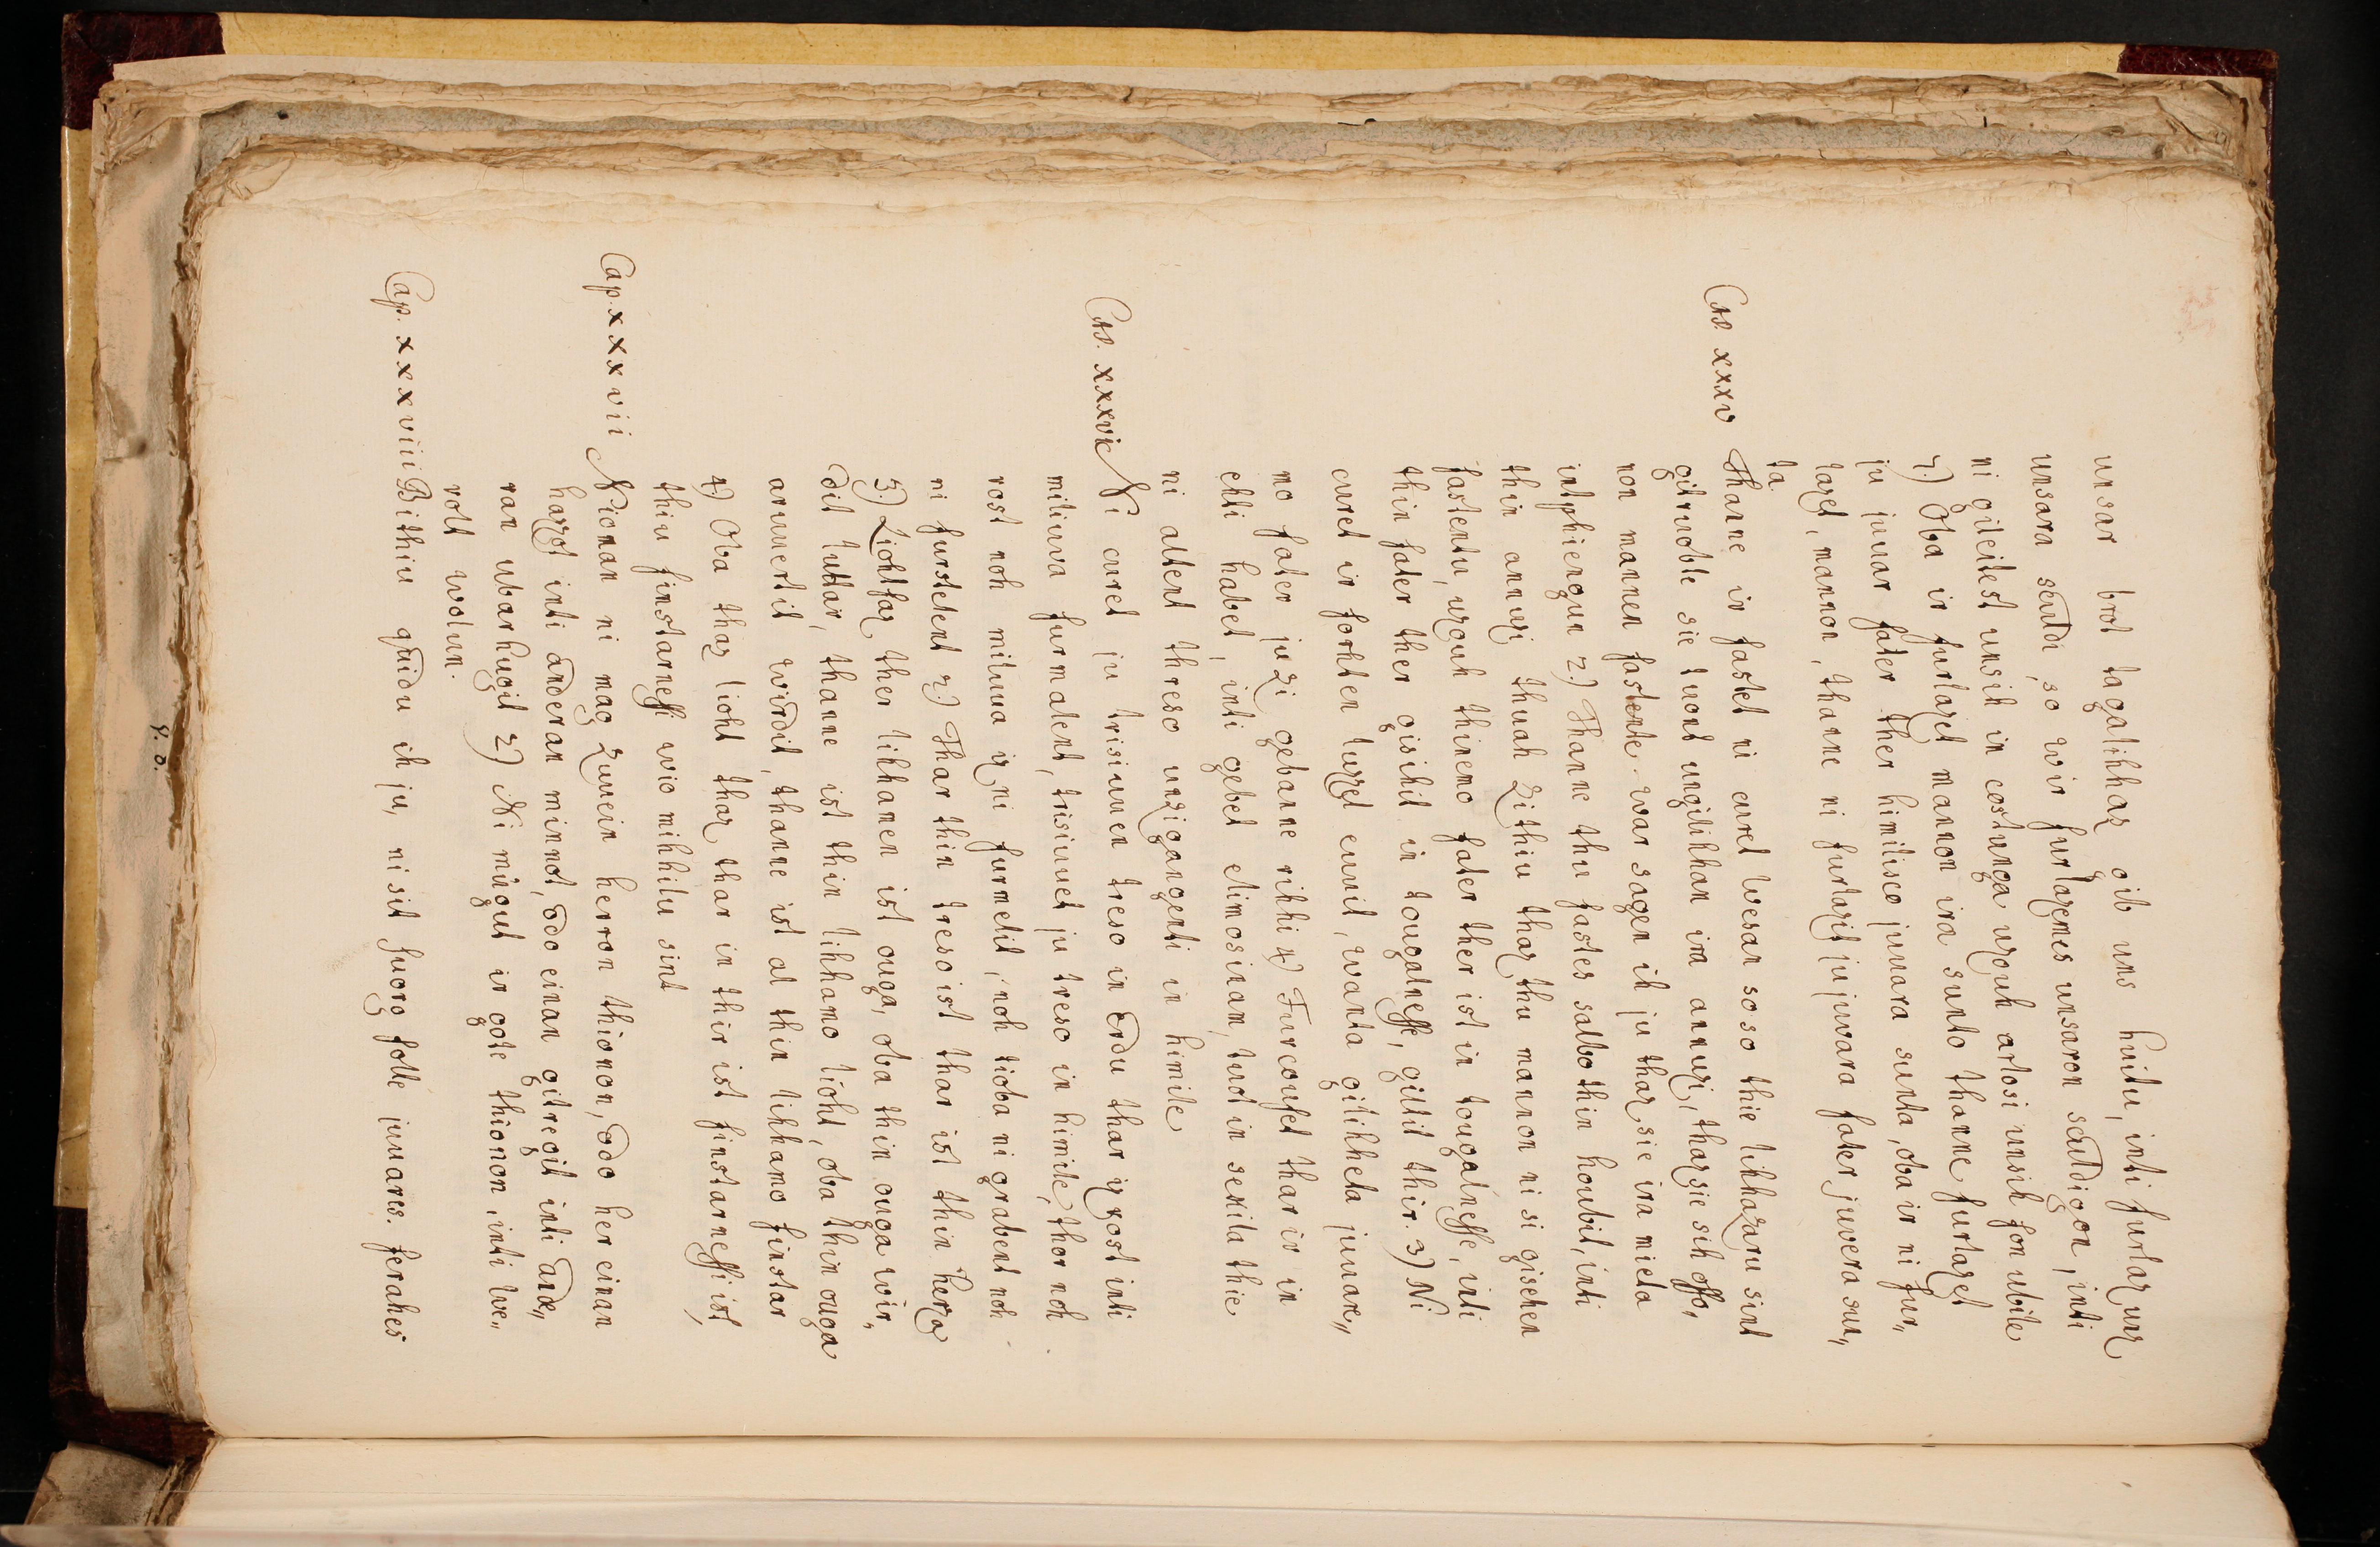 unsar brot tagalihhaz gib uns huitu, inti furlaz uns
unsara sculdi, so wir furlazemes unsaron sculdigon, inti
ni gileitest unsih in costunga uzouh arlosi unsih fon ubile
7.) Oba ir furlazet mannon ira sunto thanne furlazet
ju juuar fater ther himilisco juuara sunta, oba ir ni fur„
lazet, mannon, thanne ni furlazit ju juwara fater juwera sun„
ta
Cap. xxxv Thanne ir fastet ni curet wesan so so thie lihhazaru sint
gitruobte sie tuont ungilihhan ira annuzi, thaz sie sih offo„
non mannen fastente. war sagen ih ju thaz sie ira mieta
intphiengun 2.) Thanne thu fastes salbo thin houbit, inti
thin annuzi thuah zi thiu thaz thu mannon ni si gisehen
fastentu, uzouh thinemo fater ther ist in tougalnesse, inti
thin fater ther gisihit in tougalnesse, giltit thir. 3) Ni
curet ir forhten luzzel euuit, wanta gilihheta juuare„
mo fater ju zi gebanne rihhi 4) Furcoufet thar ir in
ehti habet, inti gebet elimosinam, tuot in sekila thie
ni altent threso unziganganti in himile
Cap. xxxvi Ni curet ju trisiuuen treso in erdu thar iz rost inti
miliuva furmalent, trisiuuet ju treso in himile, thor noh
rost noh miliuua iz ni furmelit, noh tioba ni grabent noh
ni furstelent 2.) Thar thin treso ist thar ist thin herza
3.) Liohtfaz ther lihhamen ist ouga, oba thin ouga wir„
dit luttar, thanne ist thin lihhamo lioht, oba thin ouga
aruuertit wirdit, thanne ist al thin lihhamo finstar
4) Oba thaz lioht thaz thar in thir ist finstarnessi ist,
thiu finstarnessi wio mihhilu sint
Cap. xxxvii Nioman ni mag zuuein herron thionon, odo her einan
hazzot inti anderan minnot, odo einan gitregit inti ande„
ran ubarhugit 2) Ni mugut ir gote thionon, inti we„
rolt wolun.
Cap. xxxviii Bithiu quidu ih ju, ni sit suorg folle juuares. ferahes
4. d.